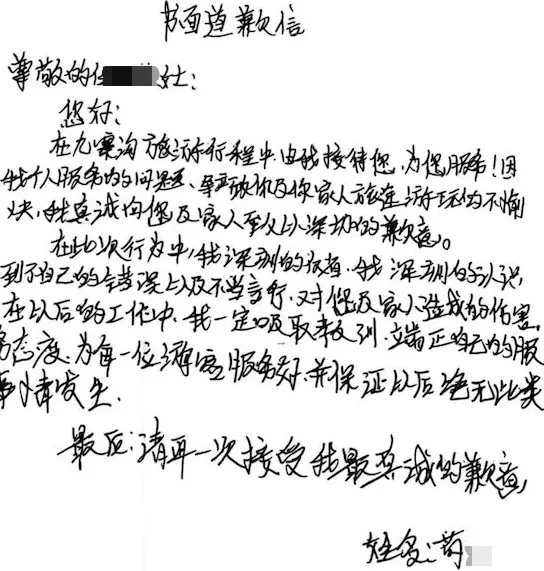 书面道歉信
尊敬的任女士:
您好:
在九寨沟旅游行程中,由我接待您,为您服务!因
我个人服务的问题,导致你及你家人旅途游玩的不愉
快,我真诚向您及家人至以深切的歉意。
在此次行为中,我深刻的反省,我深刻的认识
到了自己的错误以及不当言行,对您及家人造成的伤害。
在以后的工作中,我一定吸取教训,端正自己的服
务态度,为每一位游客服务好,并保证以后绝无此类
事情发生.
最后:请再一次接受我最真诚的歉意,
姓名:苟